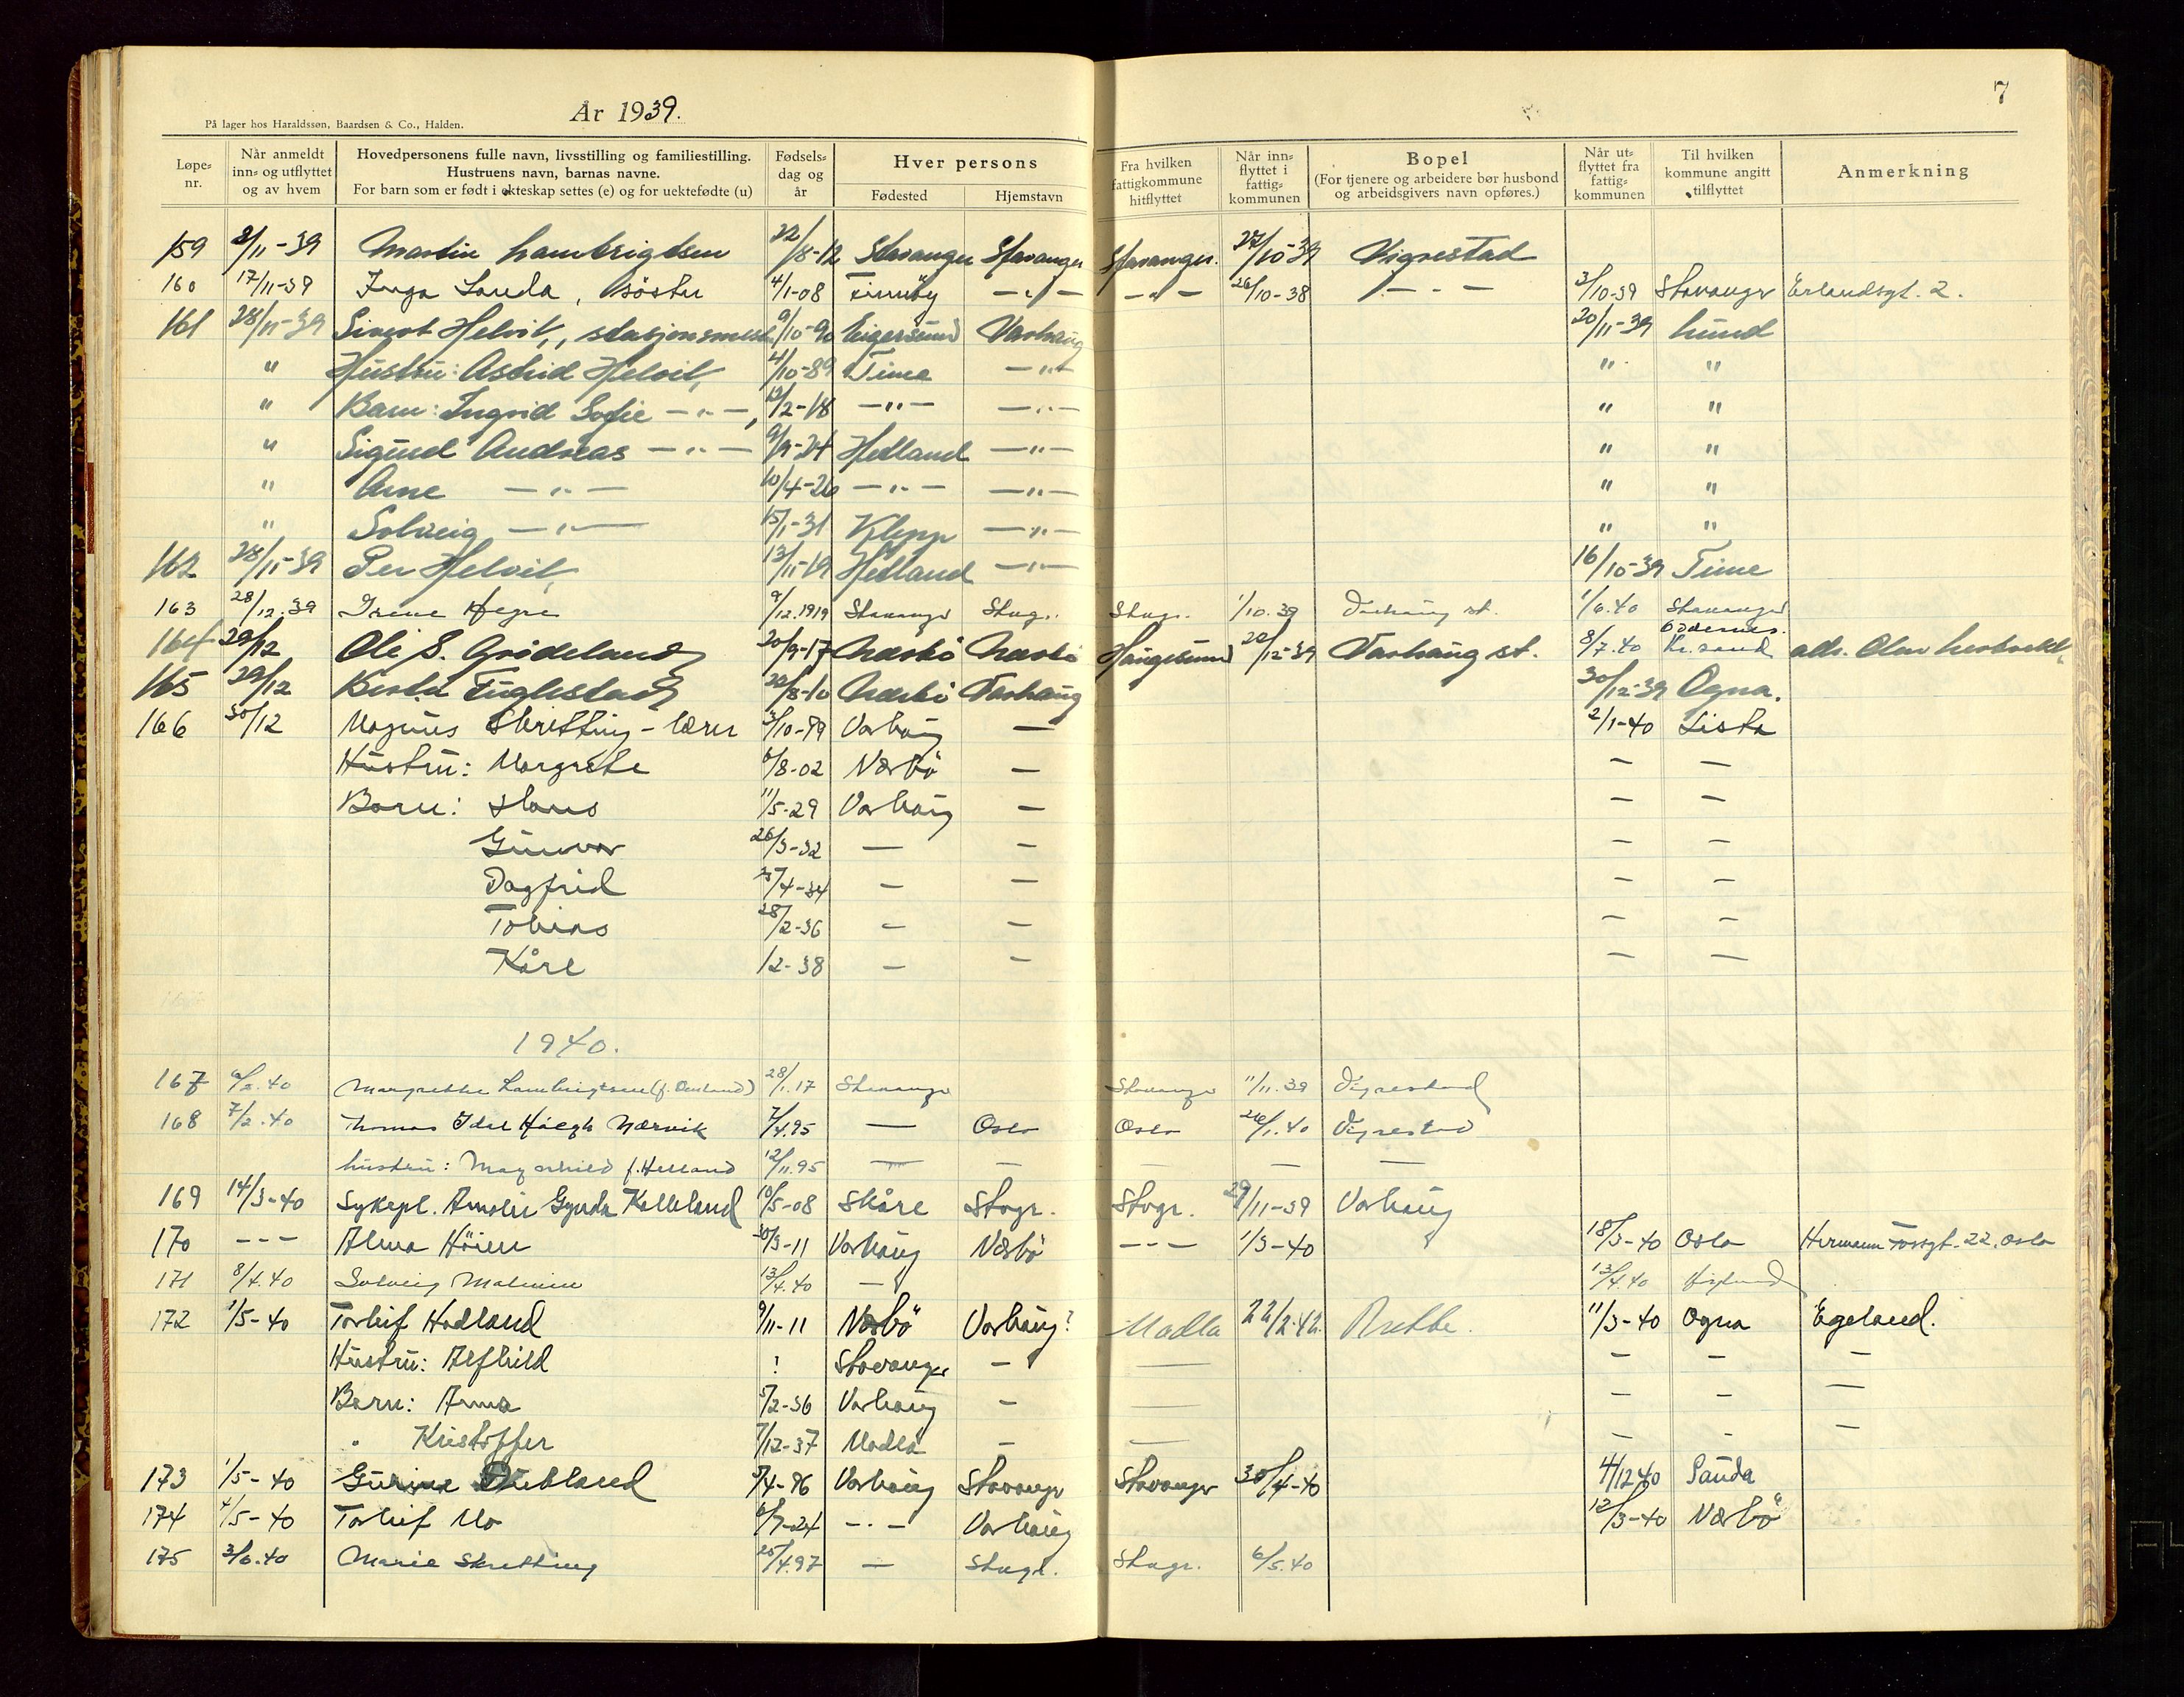 7
År 1939.
På lager hos Haraldssøn, Baardsen & Co., Halden.
Løpe-nr. Når anmeldt inn- og utflyttet og av hvem Hovedpersonens fulle navn, livsstilling og familiestilling. Hustruens navn, barnas navne. For barn som er født i ekteskap settes (e) og for uektefødte (u) Fødsels-dag og år Hver persons Fødested Hjemstavn Fra hvilken fattigkommune hitflyttet Når inn-flyttet i fattig-kommunen Bopel (For tjenere og arbeidere bør husbond og arbeidsgivers navn opføres.) Når ut-flyttet fra fattig-kommunen Til hvilken kommune angitt tilflyttet Anmerkning
159 8/11-39 Martin Lambrigtsen 22/8-12 Stavanger Stavanger Stavanger. 27/10-39 Vigrestad
160 17/11-39 Inga Sanda, söster 4/1-08 Finnöy — " — — " — 26/10-38 — " — 3/10-39 Stavanger Erlandsgt. 2.
161 28/11-39 Sivert Helvik, stasjonsmest. 9/10-90 Eigersund Varhaug 20/11-39 Lund
" Hustru: Astrid Helvik, 4/10-89 Time — " — " "
" Barn: Ingrid Sofie — " —, 12/2-18 — " — — " — " "
" Sigurd Andreas — " — 9/9-24 Hetland — " — " "
" Arne — " — 10/4-26 — " — — " — " "
" Solveig — " — 15/1-31 Klepp — " — " "
162 28/11-39 Per Helvik, 13/11-19 Hetland — " — 16/10-39 Time
163 28/12.39 Irene Hegre 9/12.1919 Stavanger Stvgr. Stvgr. 1/10.39 Varhaug st. 1/6.40 Stavanger
164 29/12 Ole S. Grödeland 20/9-17 Nærbö Nærbö Haugesund 22/12-39 Varhaug st. 8/7.40 Oddernes. Kr.sand adr.
165 29/12 Berta Fuglestad 20/8-10 Nærbö Varhaug 30/12-39 Ogna.
166 30/12 Magnus Skretting - lærer 3/10-89 Varhaug — 2/1-40 Lista
Hustru: Margrete 6/8-02 Nærbö — — —
Barn: Hans 11/5-29 Varhaug — — —
Gunvor 26/3-32 — — — —
Dagfrid /4-34 — — — —
Tobias 28/2-36 — — — —
Kåre /2-38 — — — —
1940.
167 6/2.40 Margrethe Lambrigtsen (f. ) 28/1.17 Stavanger Stavanger 11/11.39 Vigrestad
168 7/2.40 Thomas Idal Hoegh Nærvik 7/4.95 — Oslo Oslo 26/1.40 Vigrestad
hustru: Magnhild f. Helland 12/11.95 — — — — —
169 14/3-40 Sykepl. Amalie Gynda Kalleland 10/5-08 Skåre Stvgr. Stvgr. 29/11-39 Varhaug
170 - - - Alma Höien 30/3-11 Varhaug Nærbö - - - 1/3-40 18/3-40 Oslo Hermann Fossgt. 22, Oslo
171 8/4.40 Solveig Malmin 13/4.40 — 13/4.40
172 1/5-40 Torleif Hadland 9/11-11 Nærbö Varhaug? Madla 22/2.42. 11/3-40 Ogna Egeland.
Hustru: Alfhild ! Stavanger — — — — —
Barn: Anna 5/2-36 Varhaug — — — — —
" Kristoffer 7/12-37 Madla — — — — —
173 1/5-40 Gurine Dubland 3/4-86 Varhaug Stavanger Stavanger 30/4-40 4/12 40 Sauda
174 4/5-40 Torleif Mo 6/7-24 — " — Varhaug 12/3-40 Nærbö
175 3/6.40 Marie Skretting 25/4.97 — Stvgr. Stvgr. 6/5.40